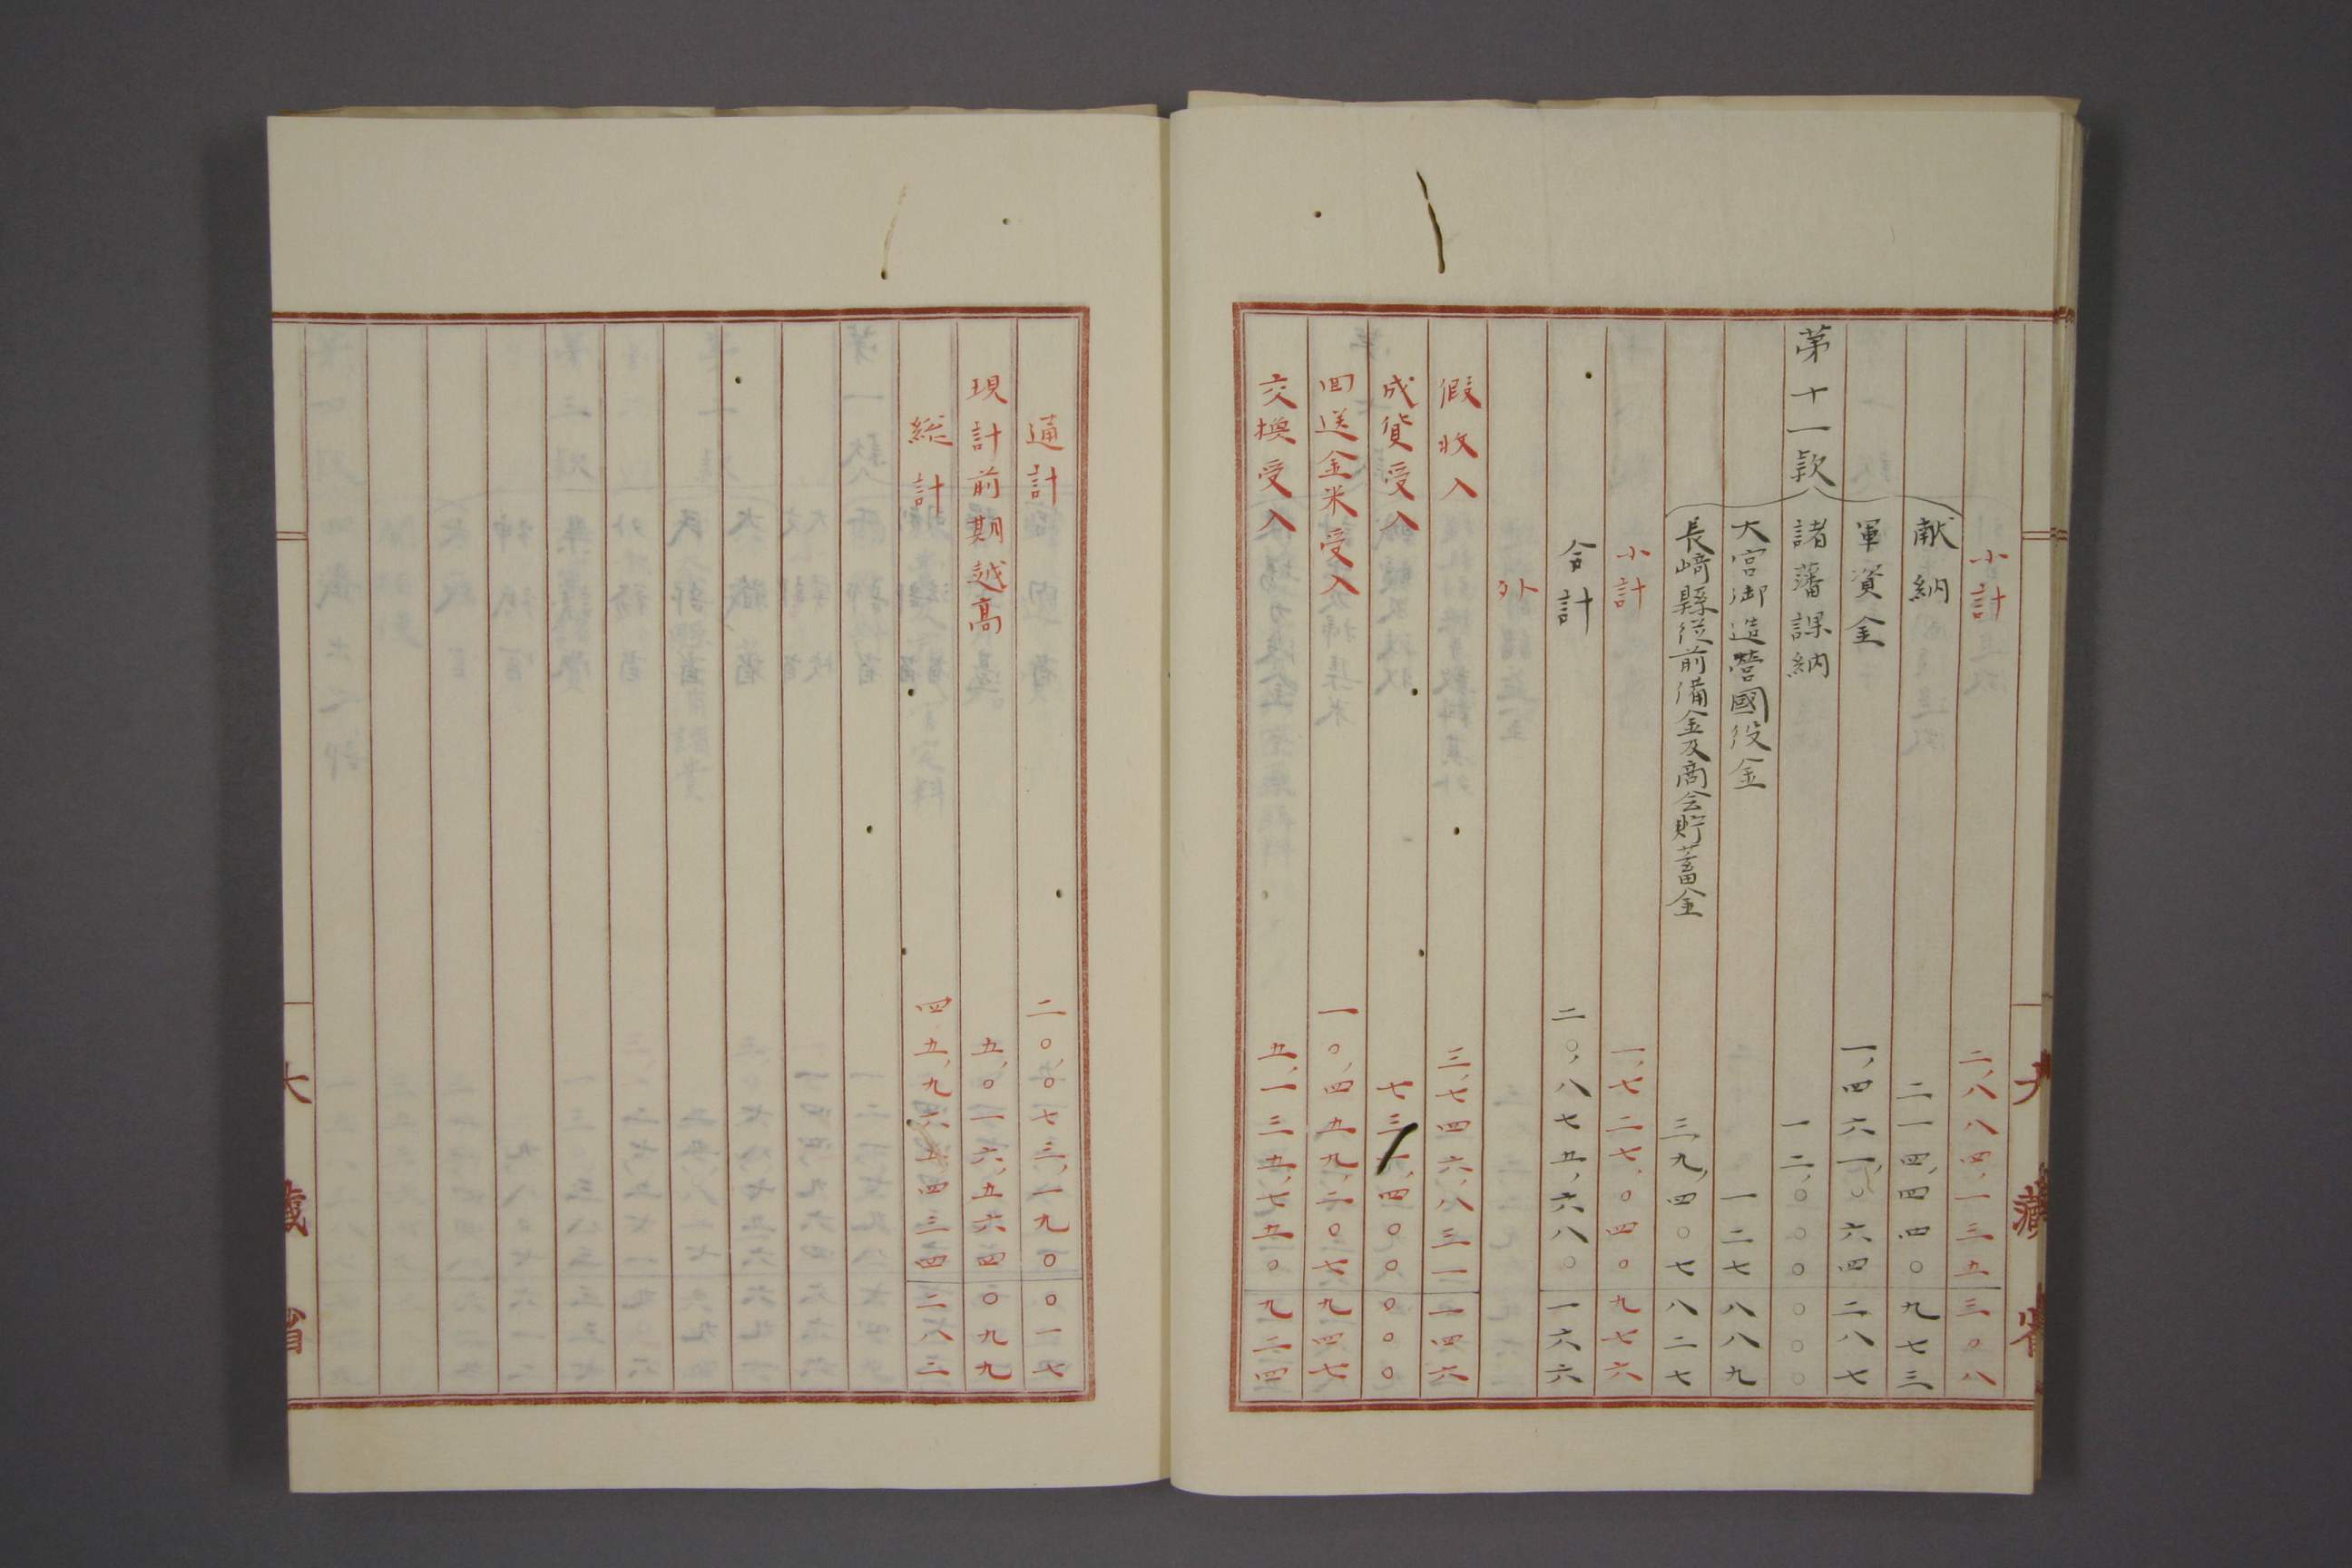 大藏省
小計 二,八八四,一三五 三〇八
第十一款
献納 二一四,四四〇 九七三
軍資金 一,四六一,〇六四 二八七
諸藩課納 一二,〇〇〇 〇〇〇
大宮御造營國役金 一二七 八八九
長﨑縣從前備金及商会貯蓄金 三九,四〇七 八二七
小計 一,七二七,〇四〇 九七六
合計 二〇,八七五,六八〇 一六六
外
假收入 三,七四六,八三一 一四六
成貨受入 七三一,四〇〇 〇〇〇
回送金米受入 一〇,四五九,二〇七 九四七
交換受入 五,一三五,七五〇 九二四
通計 二〇,〇七三,一九〇 〇一七
現計前期越高 五,〇一六,五六四 〇九九
総計 四五,九六五,四三四 二八三
大藏省